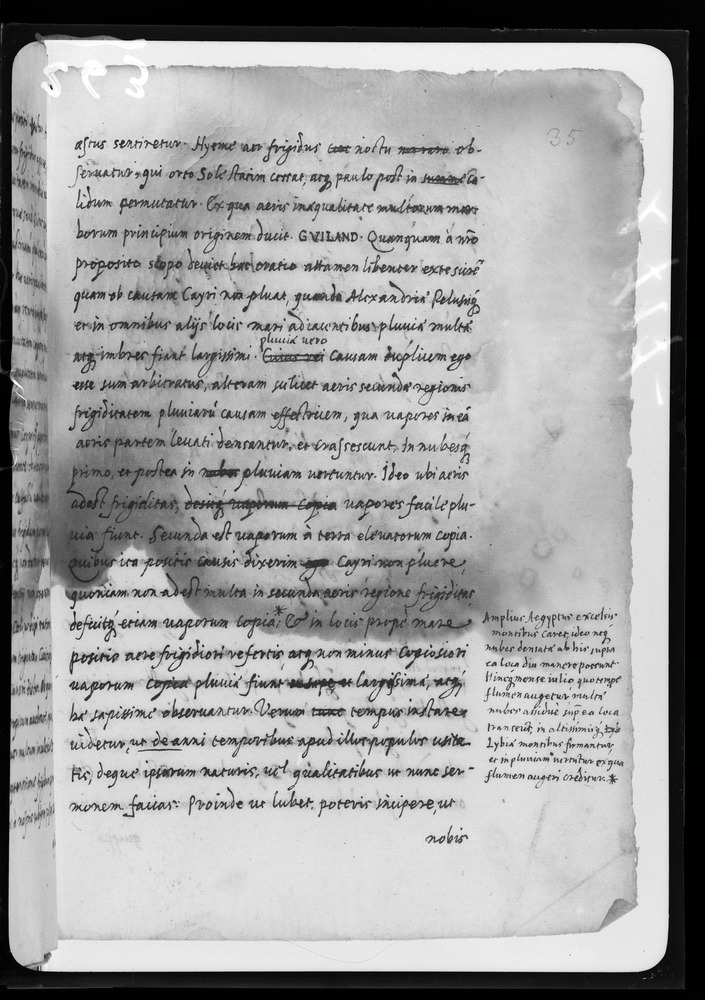 35
æstus sentiretur. Hyeme aer frigidus noctu ob-
servatur, qui orto Sole statim cessat, atq; paulo post in ca-
lidum permutatur. Ex qua aeris inæqualitate multorum mor-
borum principium originem ducit. GVILAND. Quanquam à nro
proposito scopo deviet hæc oratio attamen libenter ex te scirē
quam ob causam Cayri non pluat, quando Alexandriæ Pelusijq;
et in omnibus alijs locis mari adiacentibus pluviæ multæ
atq; imbres fiant largissimi. Cuius rei pluviæ vero causam duplicem ego
esse sum arbitratus, alteram scilicet aeris secundæ regionis
frigiditatem pluviarū causam effectricem, qua vapores in eā
aeris partem levati densantur, et crassescunt, in nubesq;
primo, et postea in nubes pluviam vertuntur. Ideo ubi aeris
adest frigiditas, desitq; vaporum copia vapores facile plu-
via fiunt. Secunda est vaporum à terra elevatorum copia.
Quibus ita positis causis dixerim ego Cayri non pluere,
quoniam non adest multa in secunda aeris regione frigiditas
deficitq; etiam vaporum copia,* & in locis prope mare
positis aere frigidiori refertis, atq; non minus copiosiori
vaporum copia pluviæ fiunt largissimæ, atq;
hæ sæpissime observantur. Verum tunc tempus instare
videtur, ut de anni temporibus apud illos populos usita-
tis, deque ipsorum naturis, vel qualitatibus ut nunc ser-
monem facias: Proinde ut lubet, poteris incipere, ut
nobis
Amplius Aegyptus excelsis
montibus caret, ideo neq;
nubes densatæ ab his supra
ea loca diu manere poterunt
Hincq; mense iulio quo tempe
flumen augetur multæ
nubes assidue supra ea loca
transeūt, in altissimisq;
Lybiæ montibus firmantur,
et in pluviam vertuntur ex qua
flumen augeri creditur.*